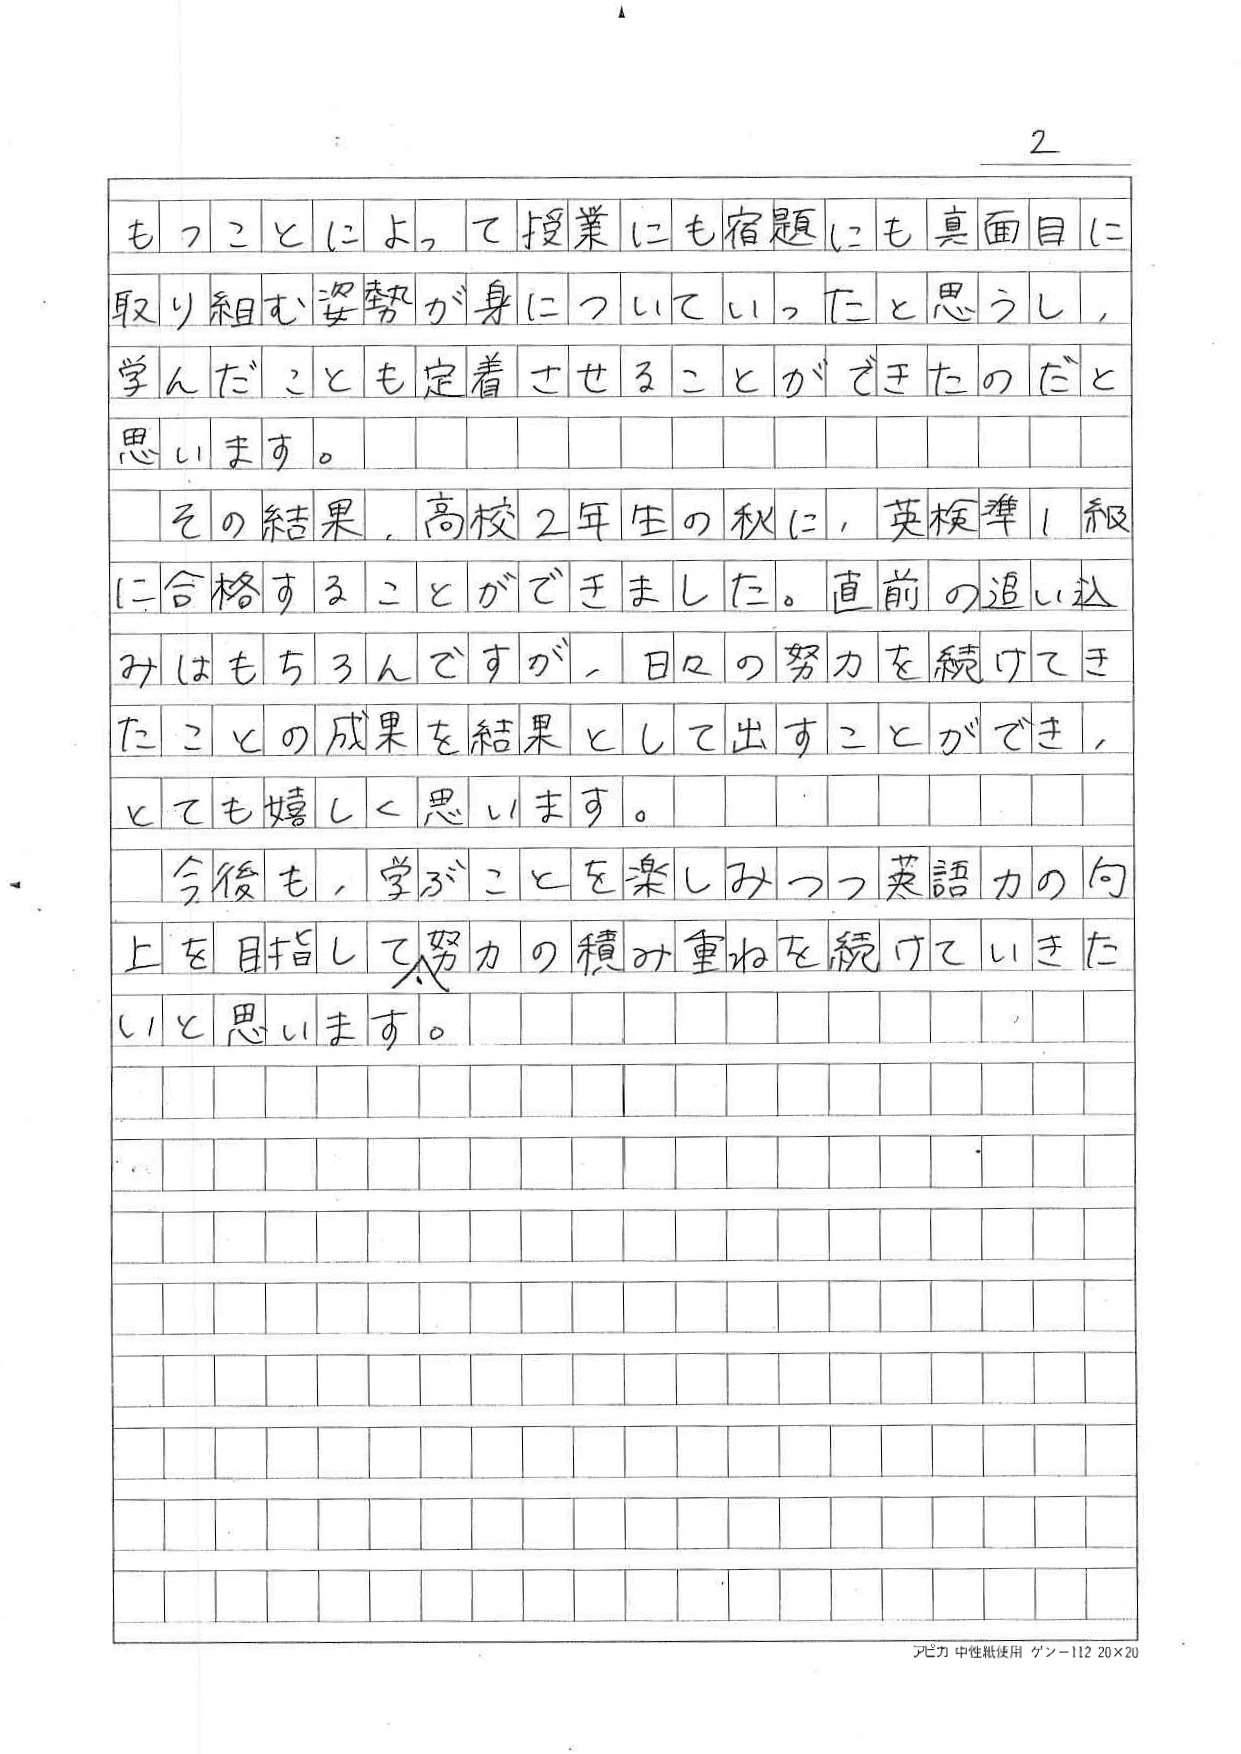 2
もつことによって授業にも宿題にも真面目に
取り組む姿勢が身についていったと思うし,
学んだことも定着させることができたのだと
思います。
その結果,高校2年生の秋に,英検準1級
に合格することができました。直前の追い込
みはもちろんですが,日々の努力を続けてき
たことの成果を結果として出すことができ,
とても嬉しく思います。
今後も,学ぶことを楽しみつつ英語力の向
上を目指して、努力の積み重ねを続けていきた
いと思います。
アピカ 中性紙使用 ゲンー112 20×20